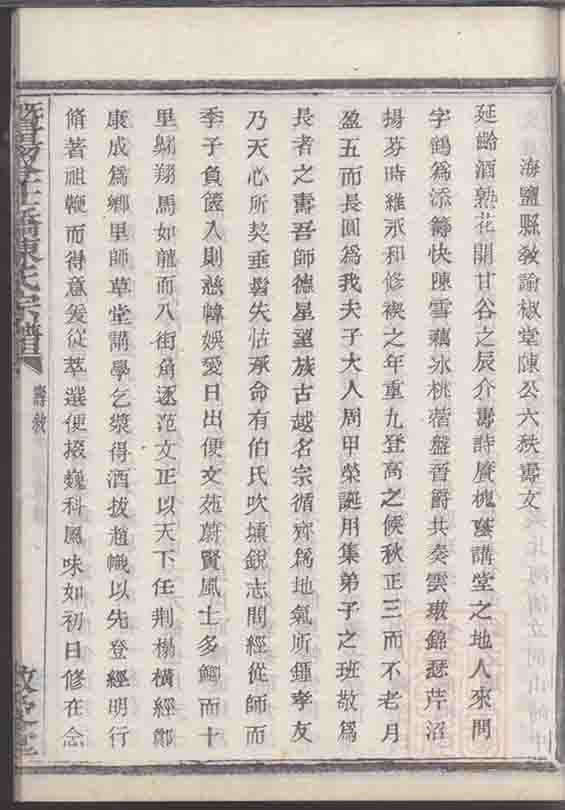 海鹽縣教諭椒堂陳公六秩壽文
延齡酒熟花開甘谷之辰介壽詩賡槐蔭講堂之地人來問
字鶴爲添籌快陳雪藕冰桃蓿盤晉爵共奏雲璈錦瑟芹沼
揚芬時維永和修禊之年重九登高之候秋正三而不老月
盈五而長圓爲我夫子大人周甲榮誕用集弟子之班敬爲
長者之壽吾師德星望族古越名宗循齊爲地氣所鍾孝友
乃天心所契垂髫失怙承命有伯氏吹塤銳志問經從師而
季子負篋入則慈幃娛愛日出便文苑蔚賢風士多鯽而十
里翱翔馬如龍而八街角逐范文正以天下任荆楊橫經鄭
康成爲鄉里師草堂講學乞漿得酒拔趙幟以先登經明行
脩著祖鞭而得意爰從萃選便掇巍科風味如初日修在念
暨陽 橋陳氏宗譜
壽敘